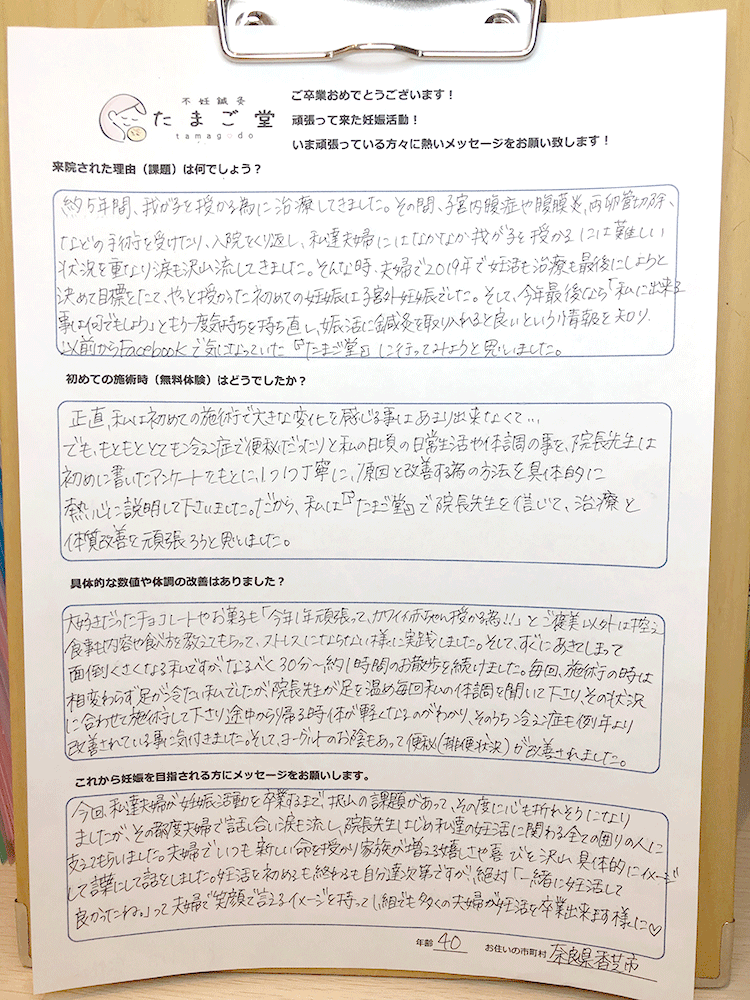 不妊鍼灸
たまご堂
tamagodo
ご卒業おめでとうございます！
頑張って来た妊娠活動！
いま頑張っている方々に熱いメッセージをお願い致します！
来院された理由（課題）は何でしょう？
約5年間、我が子を授かる為に治療してきました。その間、子宮内腹症や腹膜炎、両卵管切除、
などの手術を受けたり、入院をくり返し、私達夫婦にはなかなか我が子を授かるには難しい
状況を重なり涙も沢山流してきました。そんな時、夫婦で2019年で妊活も治療も最後にしようと
決めて目標をたて、やっと授かった初めての妊娠は子宮外妊娠でした。そして、今年最後なら「私に出来る
事は何でもしよう」ともう一度気持ちを持ち直し、妊活に鍼灸を取り入れると良いという情報を知り、
以前からFacebookで気になっていた『たまご堂』に行ってみようと思いました。
初めての施術時（無料体験）はどうでしたか？
正直、私は初めての施術で大きな変化を感じる事はあまり出来なくて…
でも、もともととても冷え症で便秘だったりと私の日頃の日常生活や体調の事を、院長先生は
初めに書いたアンケートをもとに、1つ1つ丁寧に、原因と改善する為の方法を具体的に
熱心に説明して下さいました。だから、私は『たまご堂』で院長先生を信じて、治療と
体質改善を頑張ろうと思いました。
具体的な数値や体調の改善はありました？
大好きだったチョコレートやお菓子も「今年1年頑張って、カワイイ赤ちゃん授かる為!!」とご褒美以外は控え
食事も内容や食べ方を教えてもらって、ストレスにならない様に実践しました。そして、すぐにあきてしまって
面倒くさくなる私ですが、なるべく30分〜約1時間のお散歩を続けました。毎回、施術の時は
相変わらず足が冷たい私でしたが院長先生が足を温め毎回私の体調を聞いて下さり、その状況
に合わせて施術して下さり途中から帰る時体が軽くなるのがわかり、そのうち冷え症も例年より
改善されている事に気付きました。そして、ヨーグルトのお陰もあって便秘(排便状況)が改善されました。
これから妊娠を目指される方にメッセージをお願いします。
今回、私達夫婦が妊娠活動を卒業するまで沢山の課題があって、その度に心も折れそうになり
ましたが、その都度夫婦で話し合い涙も流し、院長先生はじめ私達の妊活に関わる全ての囲りの人に
支えてもらいました。夫婦でいつも新しい命を授かり家族が増える嬉しさや喜びを沢山具体的にイメージ
して言葉にして話をしました。妊活を初めるも終わるも自分達次第ですが、絶対「一緒に妊活して
良かったね。」って夫婦で笑顔で言えるイメージを持って1組でも多くの夫婦が妊活を卒業出来ます様に♡
年齢 40 お住いの市町村 奈良県香芝市